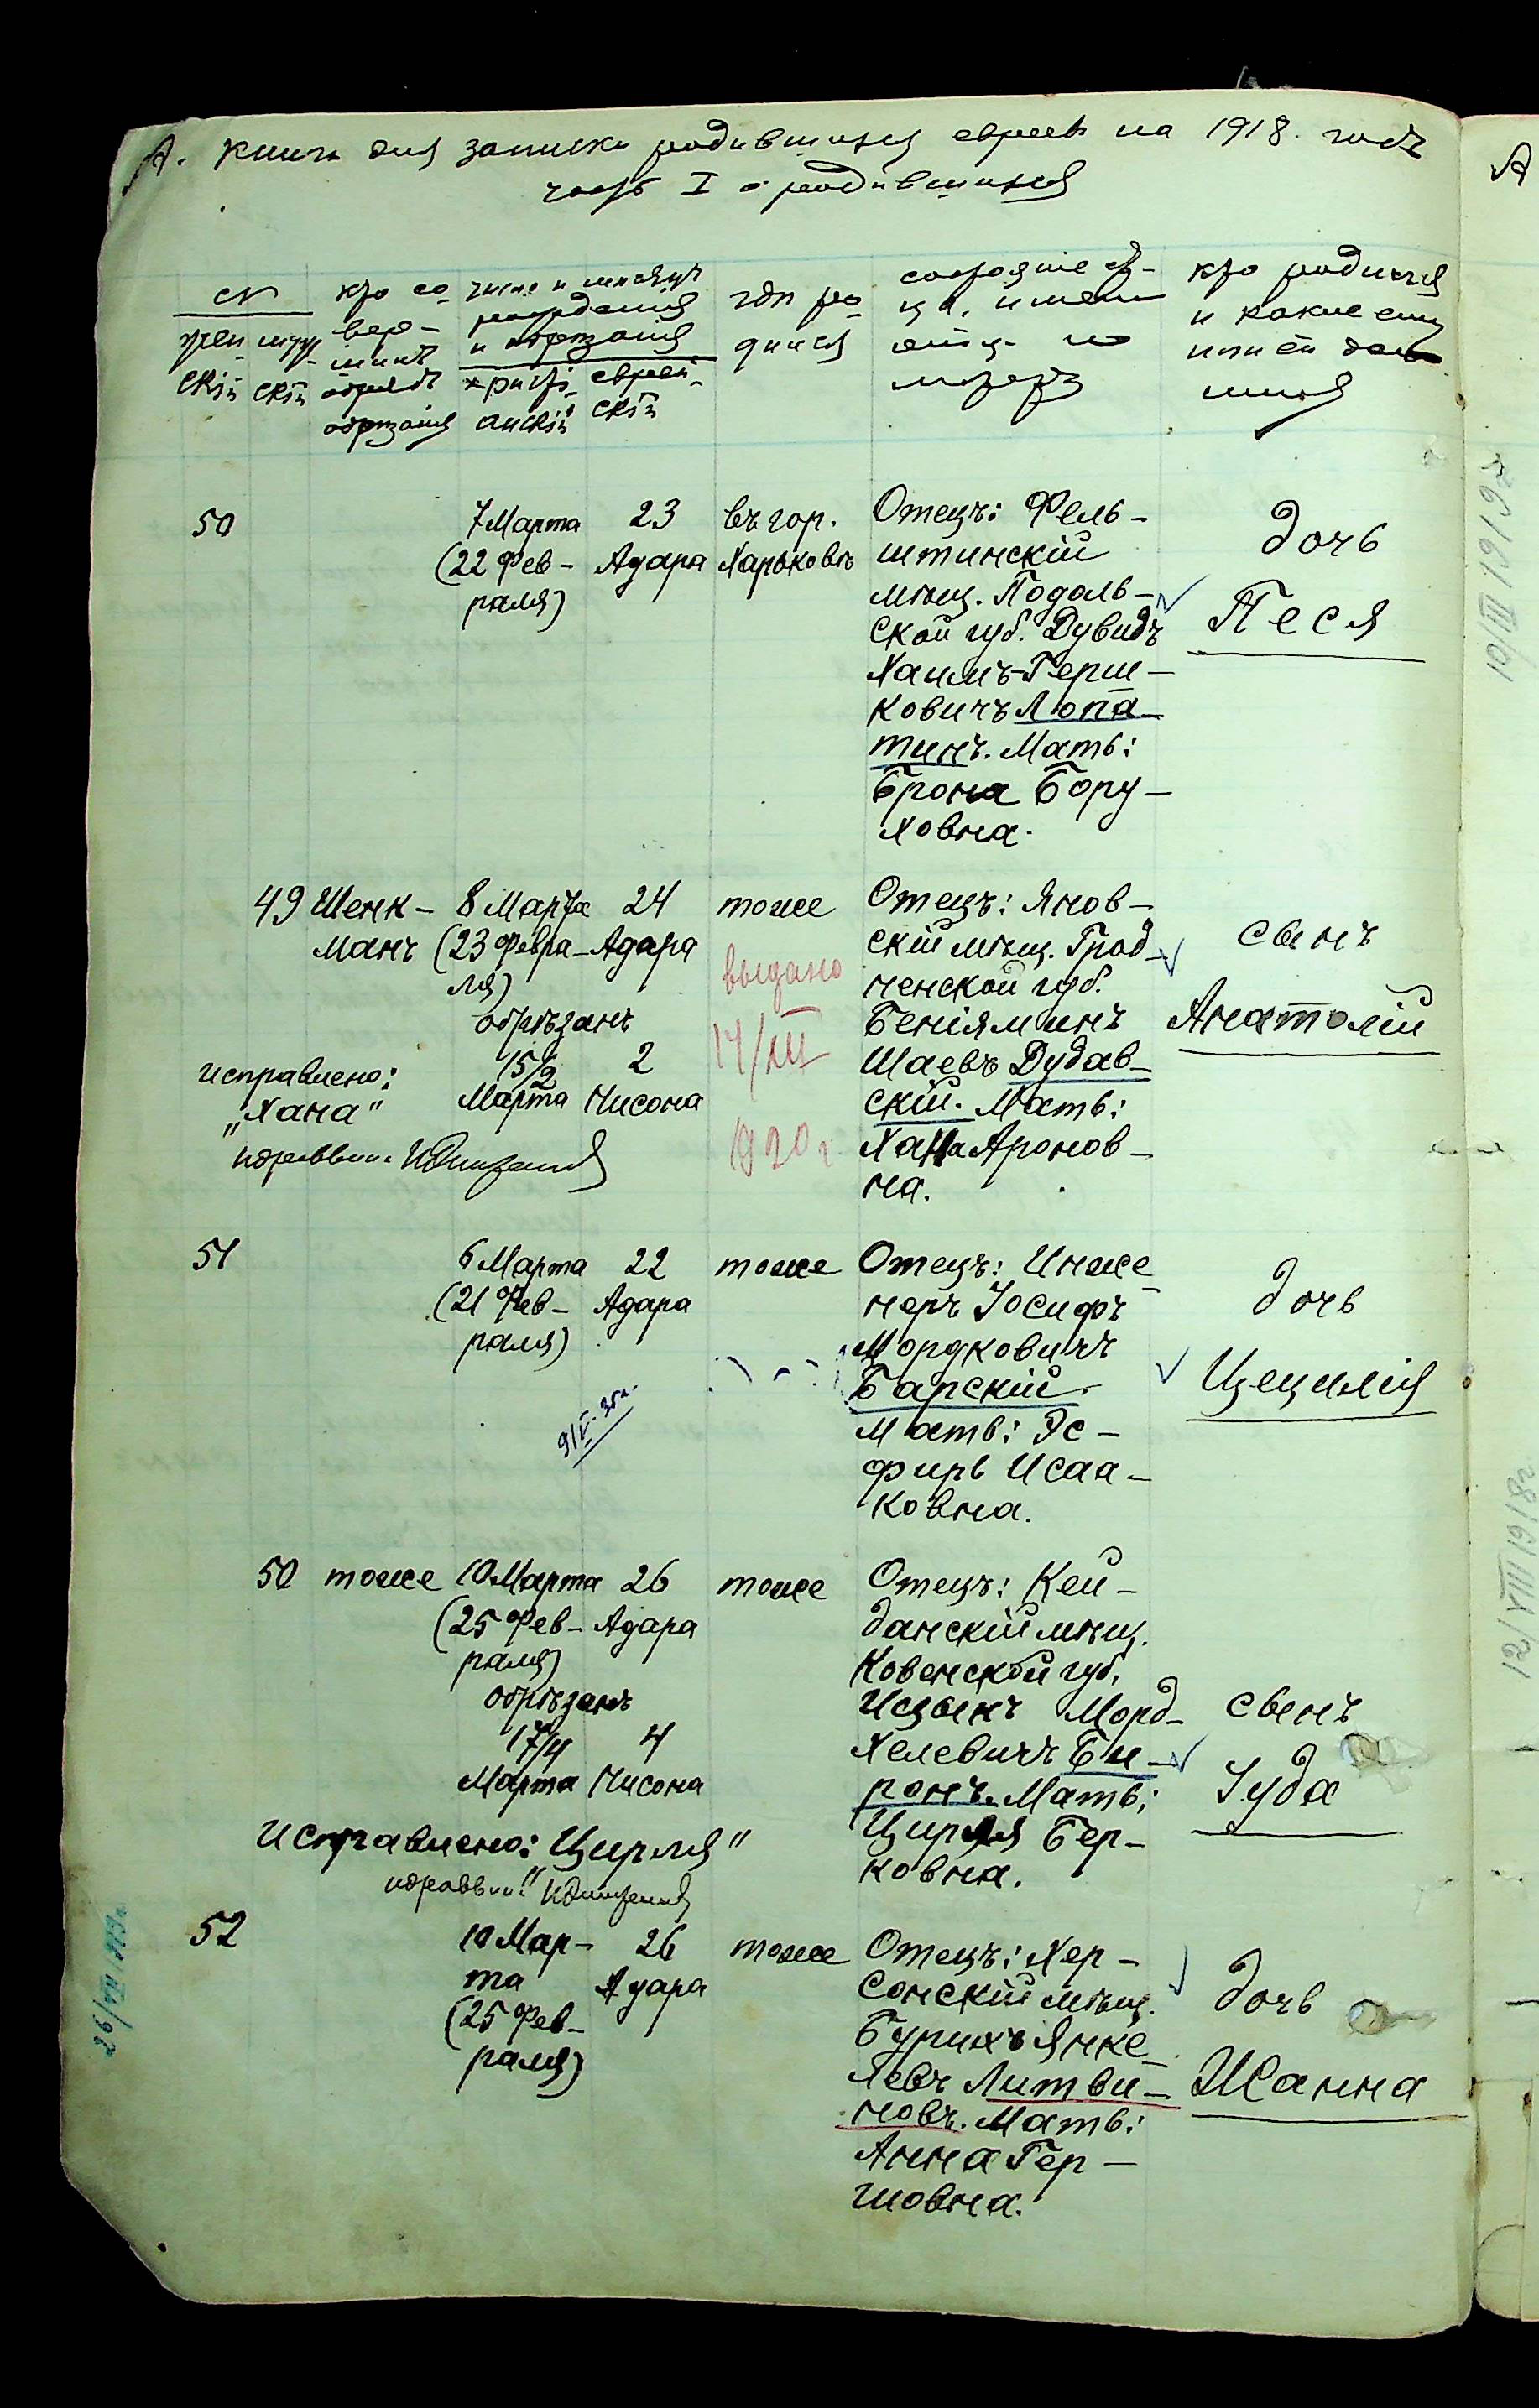 А. Книга для записки родившихся евреевъ на 1918. годъ
часть I о родившихся
№
женскій
мужскій
кто совершилъ обрядъ обрѣзанія
число и мѣсяцъ рожденія и обрѣзанія
христіанскій
еврейскій
гдѣ родился
состояніе отца, имена отца и матери
кто родился и какое ему имя ей дано
50
7 Марта
(22 Фев-
раля)
23
Адара
въ гор.
Харьковѣ
Отецъ: Фель-
штинскій
мѣщ. Подоль-
ской губ. Дувидъ
Хаимъ-Герш-
ковичъ Лопа-
тинъ. Мать:
Брона Бору-
ховна.
дочь
Песя
49
Шенк-
манъ
8 Марта
(23 Февра-
ля)
обрѣзанъ
15/2
Марта
24
Адара
2
Нисона
тоже
выдано
14/XII
1920 г.
Отецъ: Янов-
скій мѣщ. Грод-
ненской губ.
Беніяминъ
Шаевъ Дудав-
скій. Мать:
Хана Аронов-
на.
сынъ
Анатолій
исправлено:
„Хана"
51
6 Марта
(21 Фев-
раля)
22
Адара
тоже
Отецъ: Инже
неръ Іосифъ
Мордковичъ
Барскій.
Мать: Эс-
фирь Исаа-
ковна.
дочь
Цецилія
9/V-35 г.
50
тоже
10 Марта
(25 Фев-
раля)
обрѣзанъ
17/4
Марта
26
Адара
4
Нисона
тоже
Отецъ: Кей-
данскій мѣщ.
Ковенской губ.
Ицыкъ Морд-
хелевичъ Би-
ронъ. Мать:
Цирля Бер-
ковна.
сынъ
Іуда
Исправлено: Цирля"
52
10 Мар-
та
(25 Фев-
раля)
26
Адара
тоже
Отецъ: Хер-
сонскій мѣщ.
Бурихъ Янке-
левъ Литви-
новъ. Мать:
Анна Гер-
шовна.
дочь
Жанна
26/VII 1919 г.
А
10/III 1919 г
12/VIII 1918 г